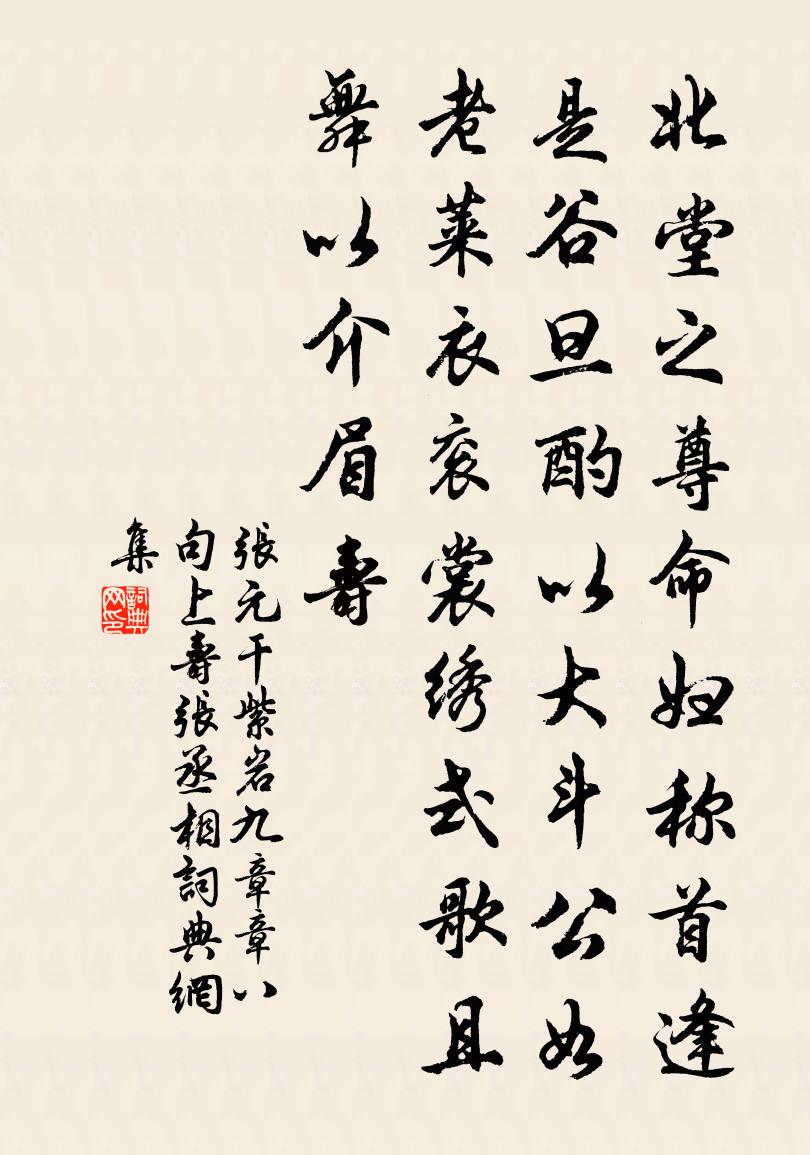 北堂之尊命妇称首逢
是谷旦酌以大斗公如
老莱衣衮裳绣式歌且
舞以介眉壽
張元干紫岩九章章八
句上壽張丞相詞典網
集
詞典
网印